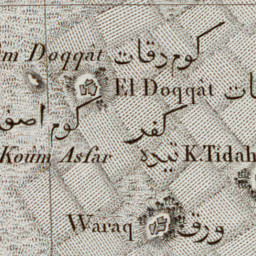 m Doqqât كوم دقات
El Doqqât
كوم اصفر
كفر
Koum Asfar
تيده K. Tidah
Waraq ورق